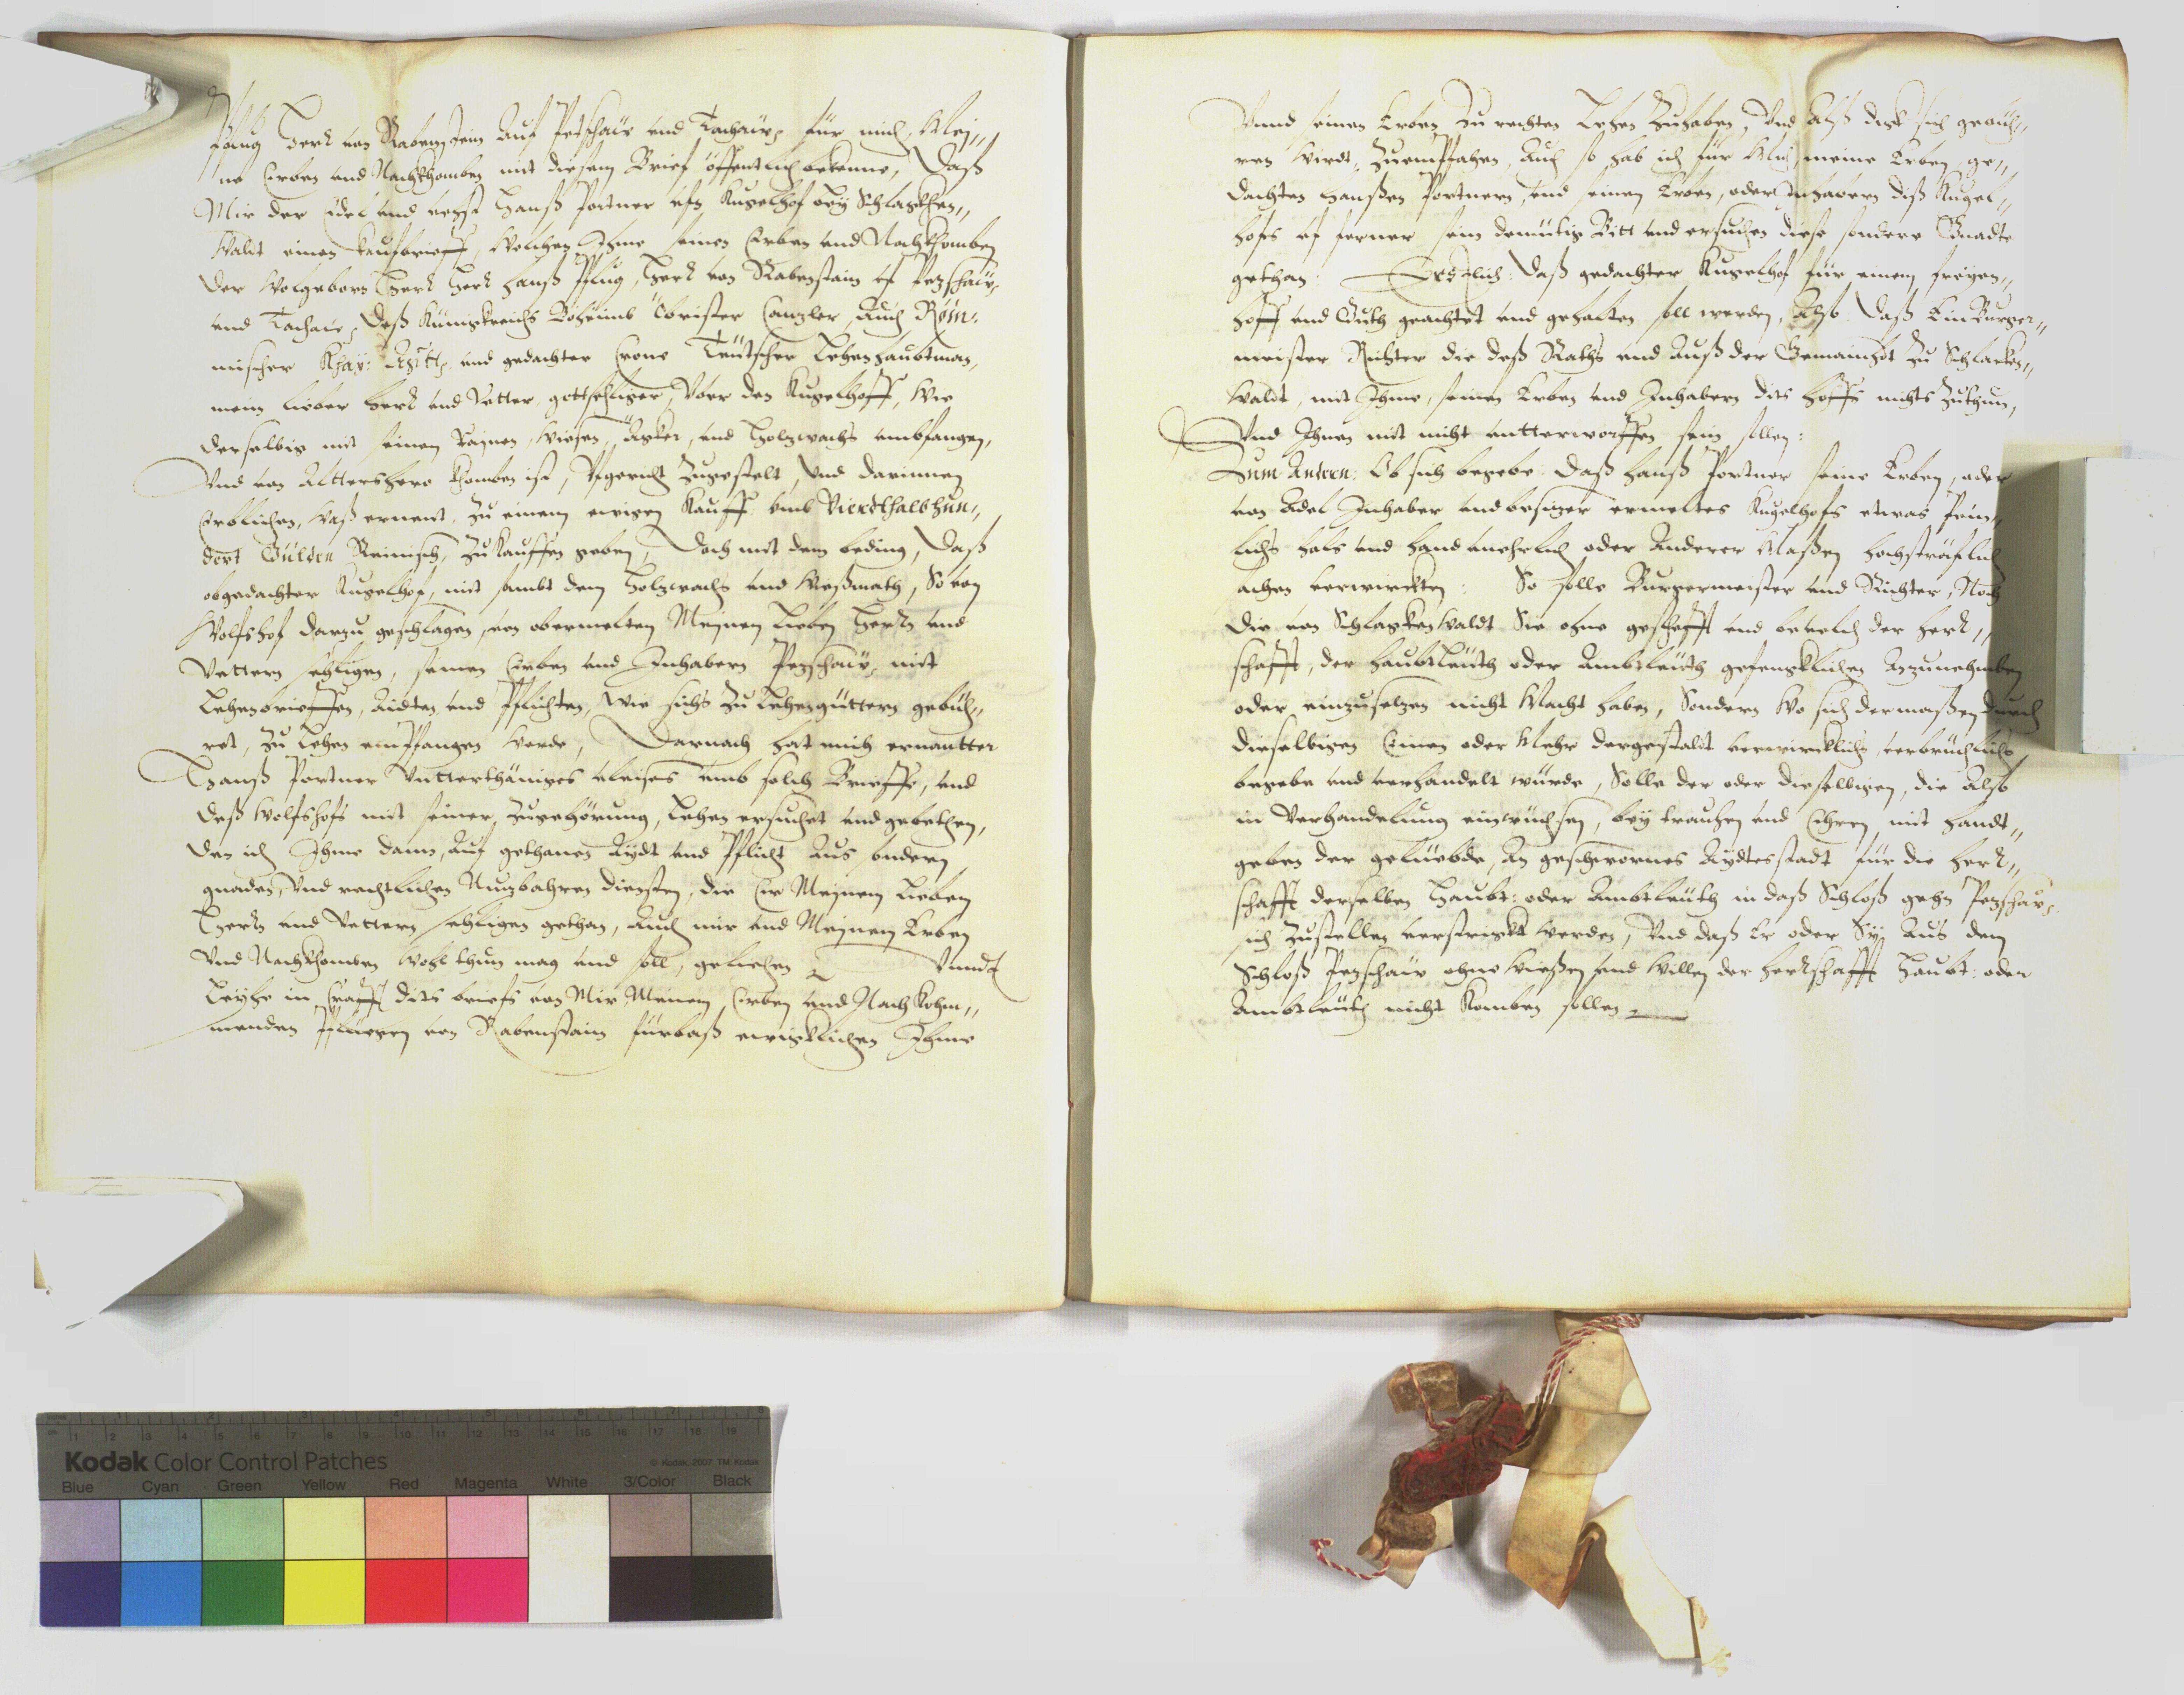 Pflug Herr von Rabenstein Auf Petschaw und Tachaw, für mich, Mej„
ne Erben und Nachkhomben mit diesem Brief öffentlich bekenne, Daß
Mir der Edel und vehst Hanß Portner ufn Kugelhof bey Schlackhen„
Waldt einen kaufbrieff, Welchen Ihme seinen Erben und Nachkhomben
der Wolgeborn Herr Herr Hanß Pflug, Herr von Rabenstain uf Petzschaw,
und Tachaw, deß Künigkreichs Böheimb Obrister Canzler, Auch Röm:
mischer Khay: Mtt: und gedachter Crone Teutscher Lehenhaubtman,
mein lieber Herr und Vetter gottsehliger, Vber den Kugelhoff, Wie
derselbig mit seinen Rainen, Wiesen, Äcker, und Holzwachs umbfangen,
Vnd von Altershero khomben ist, Vfgericht Zugestelt, Vnd darinnen
Erblichen, Waß ernent, zu einem ewigen Kauff umb Vierdthalbhun„
dert Gülden Reinisch, Zukauffen geben, Doch mit dem beding, Daß
obgedachter Kugelhof, mit sambt dem Holzwachs und Wießmath, So von
Wolfshof darzu geschlagen, von obermelten Meinen Lieben Herrn und
Vettern sehligen, seinen Erben und Inhabern Petzschaw, mit
Lehenbrieffen, Aidten und Pflichten, Wie sichs Zu Lehengüttern gebüh„
ret, Zu Lehen empfangen Werde, Darnach hat mich ernantter
Hanß Portner Vntterthäniges vleises umb solch Brieffe, und
deß Wolfshofs mit seiner Zugehörung, Lehen ersuchet und gebethen,
den ich Ihme dann, Auf gethanen Aydt und Pflicht Aus sondern
gnaden, Vnd rechtlichen Nutzbahren diensten, die Er Meinem Lieben
Herrn und Vettern sehligen gethan, Auch mir und Meinen Erben
Vnd Nachkhomben Wohl thun mag und soll, geliehen Vnndt
Leyhe in Crafft dits briefs von Mir Meinen, Erben und Nachkohm„
menden Pflügen von Rabenstain fürbaß ewigklichen Ihme
Vnnd seinen Erben Zu rechten Lehen Zuhaben, Vnd Alß dick sich gebüh„
ren Wirdt, Zuempfahen, Auch so hab ich für Mich meine Erben, ge„
dachten Hanßen Portnern, und seinen Erben, oder Inhabern diß Kugel„
hofs uf ferner sein demütig Bitt und ersuchen diese sondere Gnadte
gethan: Erstlich: daß gedachter Kugelhof für einem freyen„
hoff und Guth geachtet und gehalten soll werden, Also: daß Ein Burger„
meister Richter die deß Raths und Auß der Gemainheit zu Schlacken„
Waldt, mit Ihme, seinen Erben und Inhabern dits hoffs nichts Zuthun,
Vnd Ihnen mit nicht untterworffen sein sollen:
Zum Andern: Ob sich begebe: daß Hanß Portner seine Erben, oder
von Adel Inhaber und besitzer ermeltes Kugelhofs etwas Pein„
lichs hals und hand unehrlich oder Anderer Maßen hochsträflich
achen verwirckten: So solle Burgermeister und Richter, Noch
die von SchlackenWaldt Sie ohne gescheft und bevelch der Herr„
schafft, der Haubtleuth oder Ambtleuth gefengklichen Anzunehmben
oder einzusetzen nicht Macht haben, Sondern Wo sich dermaßen durch
dieselbigen Einen oder Mehr dergestaldt verwircklichs, verbrüchlichs
begebe und verhandelt würde, Solle der oder dieselbigen, die Also
in Verhandelung einwüchsen, bey trauhen und Ehren mit handt„
geben der gelüebde, An geschwornes Aydtesstadt für die Herr„
schafft derselben Haubt: oder Ambtleuth in daß Schloß gehn Petzschaw,
sich Zustellen verstrickt werden, Vnd daß Er oder Sy Aus dem
Schloß Petzschaw ohne Wießen und Willen der Herrschafft Haubt: oder
Ambtleuth nicht Komben sollen
Kodak Color Control Patches
© Kodak, 2007 TM: Kodak
Blue Cyan Green Yellow Red Magenta White 3/Color Black